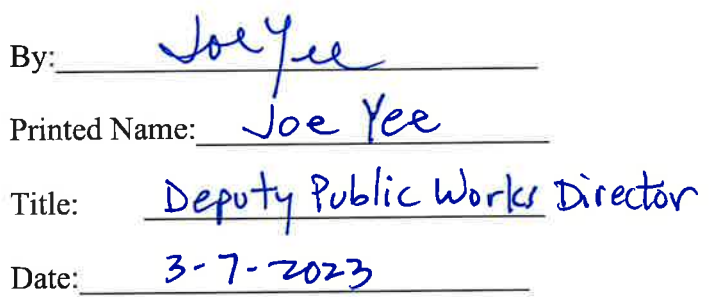 By: Joe Yee
Printed Name: Joe Yee
Title: Deputy Public Works Director
Date: 3-7-2023